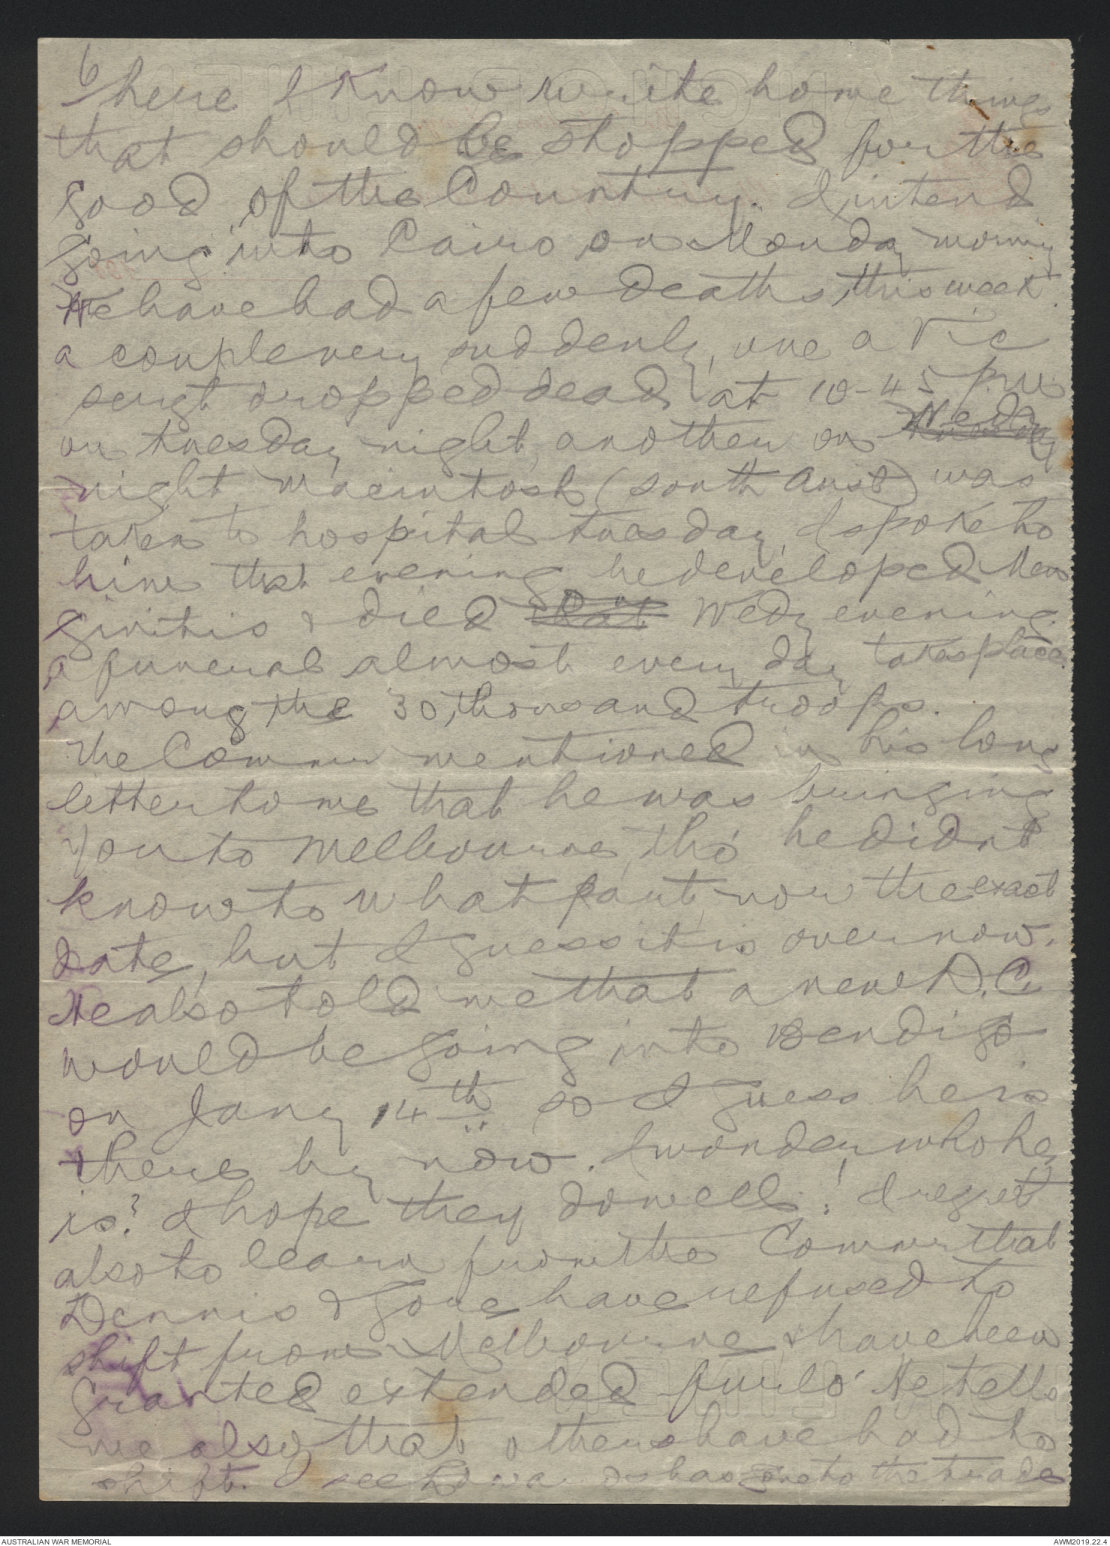 6
here I know write home things
that should be stopped for the
good of the Country. I intend
going into Cairo on Monday morning
We have had a few deaths, this week.
a couple very suddenly, one a Vic
sergt dropped dead, at 10-45 pm
on tuesday night, another on Wedy
night Macintosh (South Aust) was
taken to hospital tuesday, I spoke to
him that evening he developed Men
gintis & died Wedy evening.
a funeral almost every day takes place
among the 30, thousand troops.
The Commr mentioned in his long
letter to me that he was bringing
You to Melbourne, tho' he didnt
know to what part, nor the exact
date, but I guess it is over now.
He also told me that a new D.C.
would be going into Bendigo
on Jany 14th so I guess he is
there by now. I wonder who he
is? I hope they do well! I regret
also to learn from the Commr that
Dennis & Gore have refused to
shift from Melbourne, & have been
granted extended furlo' He tells
me also, that others have had to
shift. I see has gone to the trade
AUSTRALIAN WAR MEMORIAL
AWM2019.22.4